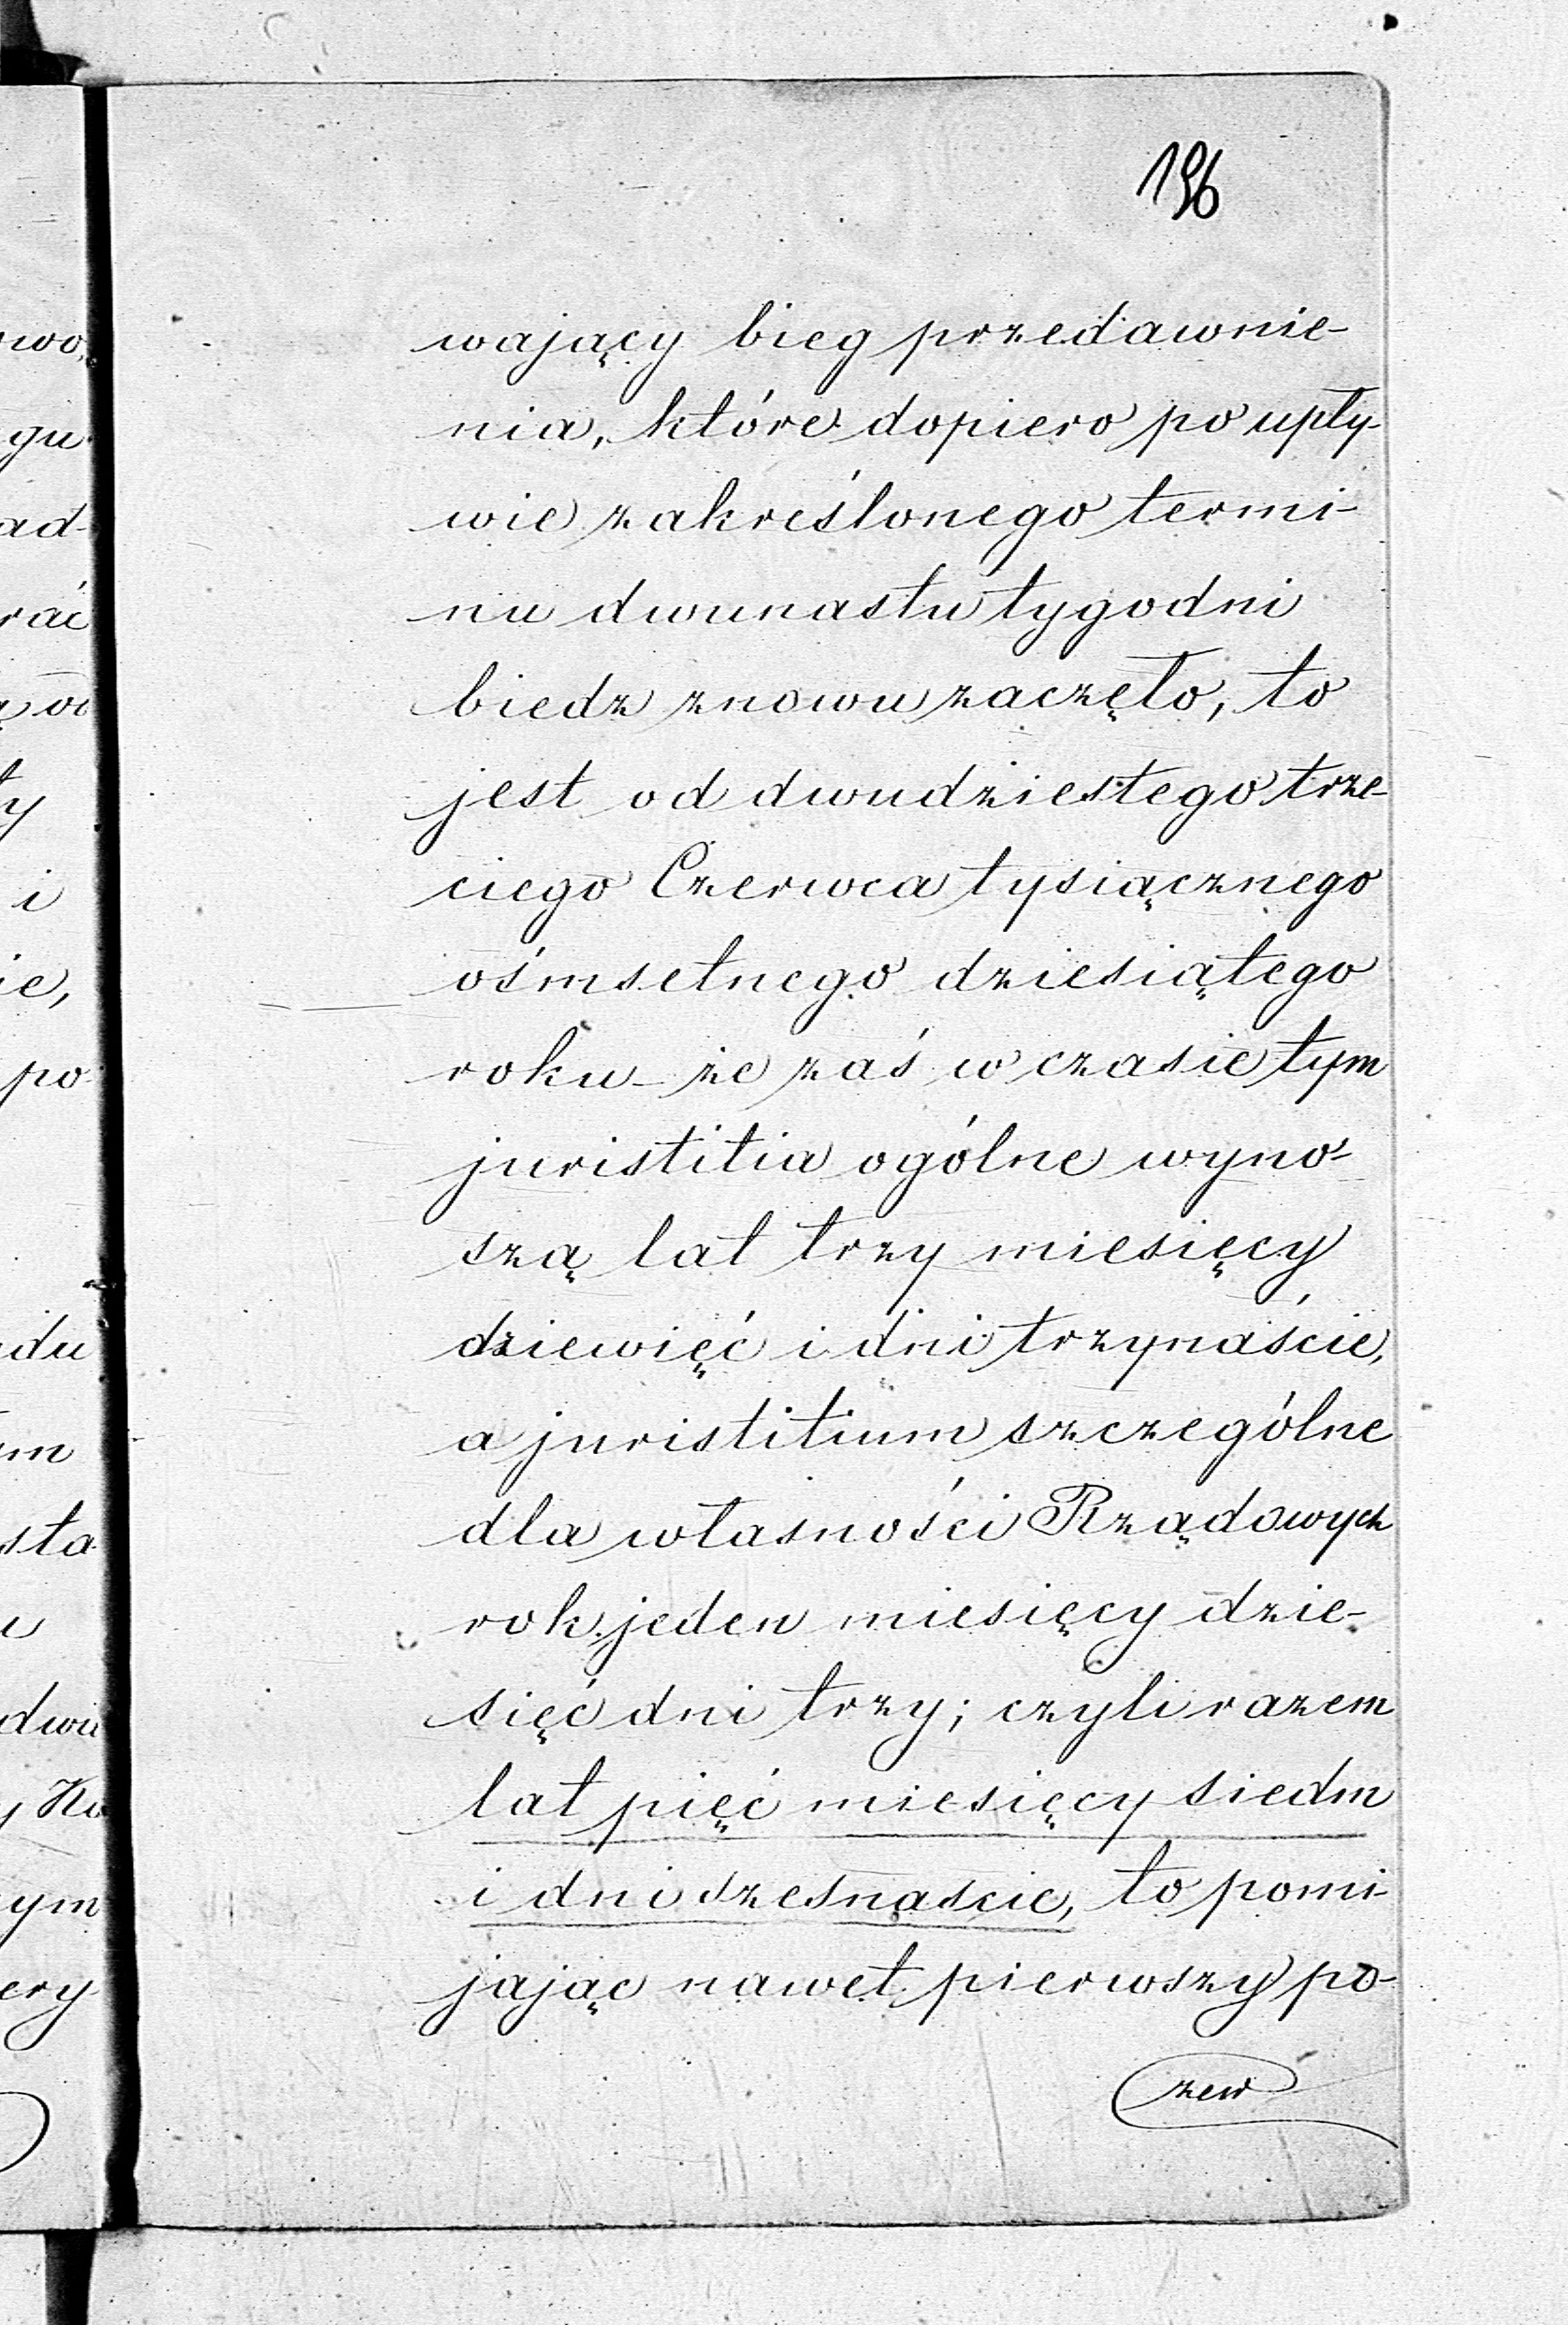 196
wający bieg przedawnie-
nia, które dopiero po upły-
wie zakreślonego termi-
nu dwunastu tygodni
biedz znowu zaczęło, to
jest od dwudziestego trze-
ciego Czerwca tysiącznego
ośmsetnego dziesiątego
roku – że zaś w czasie tym
juristitia ogólne wyno-
szą lat trzy miesięcy
dziewięć i dni trzynaście,
a juristitium szczególne
dla własności Rządowych
rok jeden miesięcy dzie-
sięć dni trzy; czyli razem
lat pięć miesięcy siedm
i dni szesnascie, to pomi-
jając nawet pierwszy po-
zew